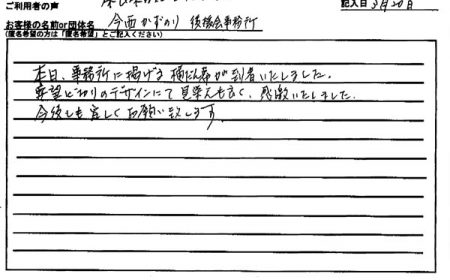 ご利用者の声
記入日 3月20日
お客様の名前or団体名 今西かずのり 後援会事務所
(匿名希望の方は「匿名希望」とご記入ください)
本日、事務所に掲げる横だん幕が到着いたしました。
希望どおりのデザインにて見栄えも良く、感激いたしました。
今後とも宜しくお願い致します。